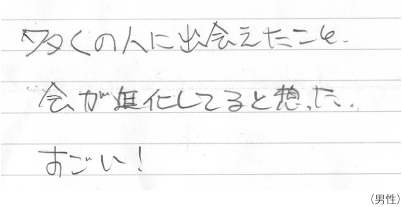 多くの人に出会えたこと.
会が進化してると想った.
すごい!
(男性)